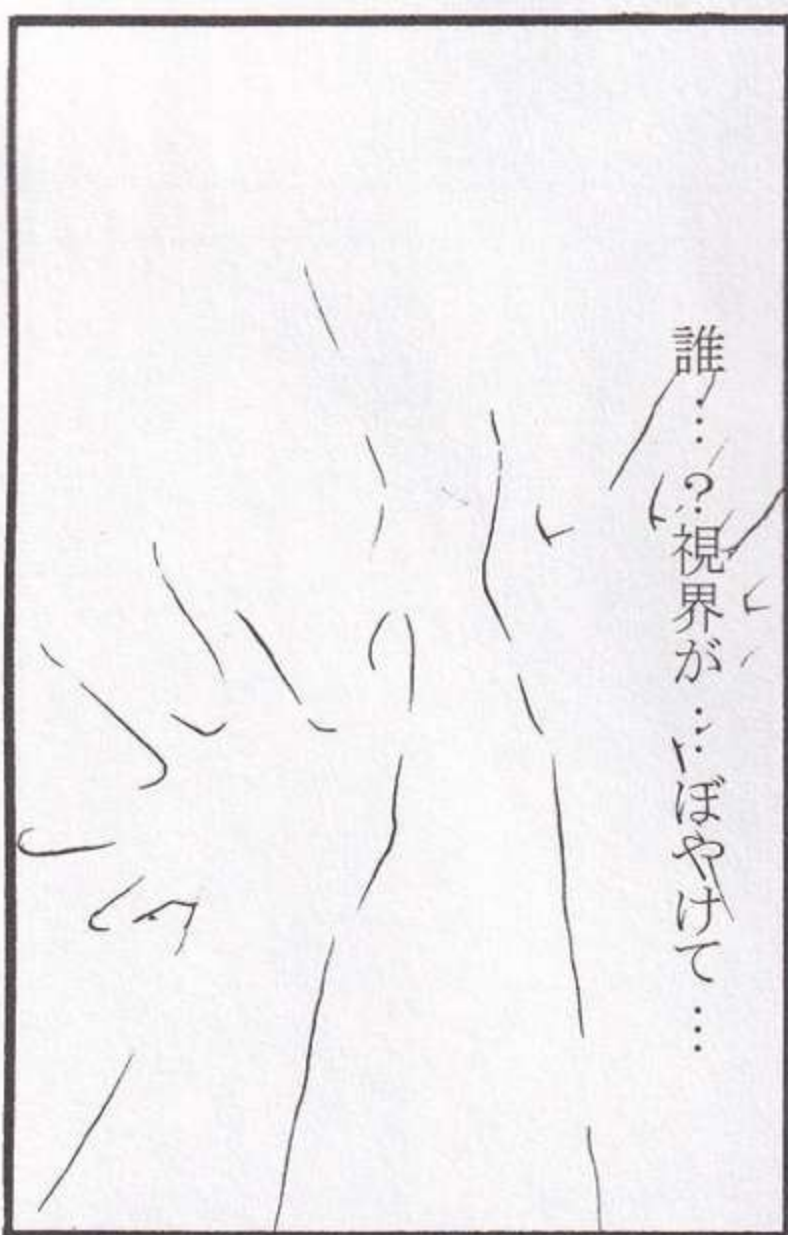 誰…？視界が…ぼやけて…